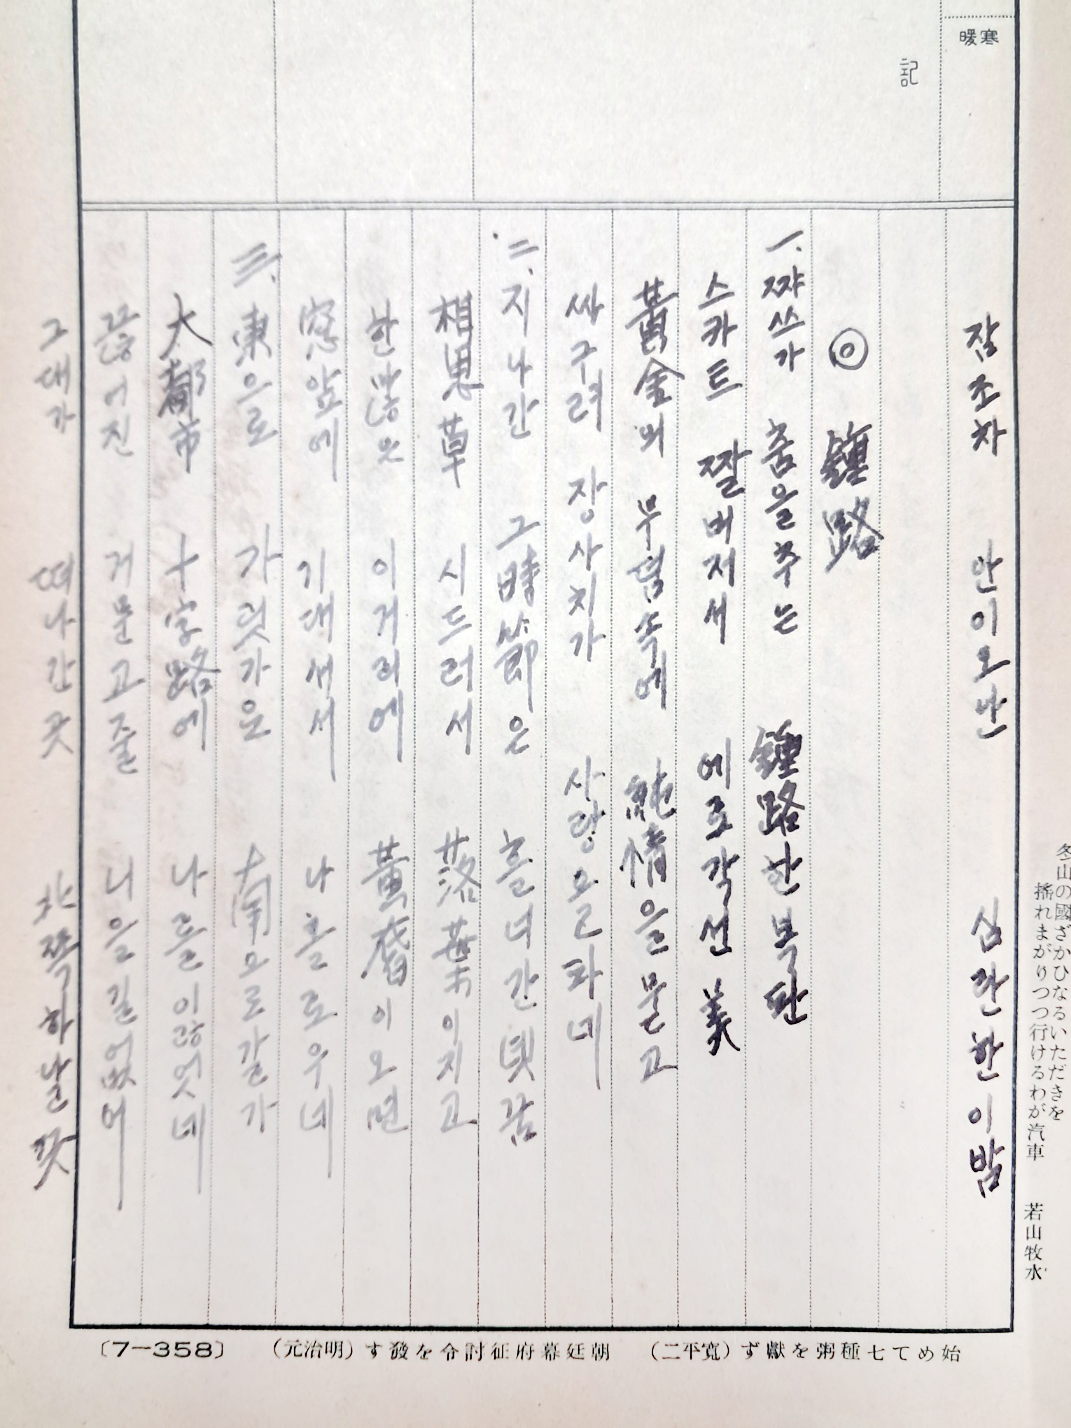 寒暖
記
잠조차 안이오난 심란한 이밤
◎ 鍾路
一、쨔쓰가 춤을추는 鍾路한복판
스카트 짤버저서 에로각선美
黃金의 무덤속에 純情을뭇고
싸구려 장사치가 사랑을파네
二、지나간 그時節은 흘너간녯꿈
相思草 시드러서 落葉이지고
한많은 이거리에 黃昏이오면
窓앞에 기대서서 나홀로우네
三、東으로 가릿가은 南으로갈가
大都市 十字路에 나를잃엇네
끊어진 거문고줄 니을길없어
그대가 떠나간곳 北쪽하날끗
冬山の國ざかひなるいただきを
搖れまがりつつ行けるわが汽車 若山牧水
始めて七種粥を獻ず（寬平二） 朝廷幕府征討令を發す（明治元） 〔7—358〕